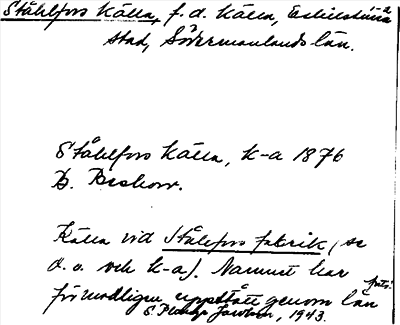 Ståhlfors Källa, f. d. källa, Eskilstuna
stad, Södermanlands län.
Ståhlfors Källa, k-a 1876
Källa vid Stålfors fabrik, se
d. o. och k-a). Namnet har
förmodligen uppstått genom lån
1943.